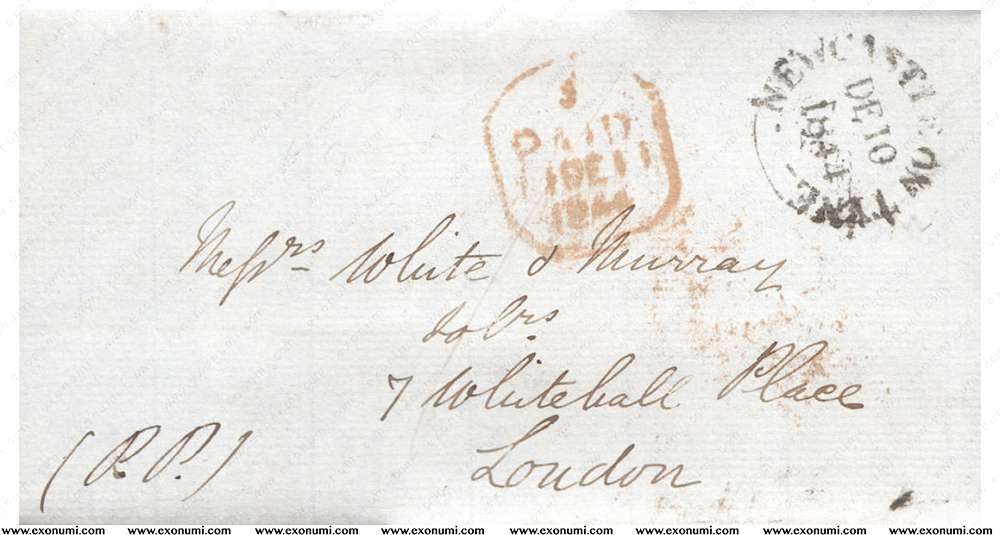 NEWCASTLE ON TYNE
DE 10
1844
S
PAID
11 DE 11
1844
Messrs White & Murray
Solrs
7 Whitehall Place
London
(P.P.)
www.exonumi.com www.exonumi.com www.exonumi.com www.exonumi.com www.exonumi.com www.exonumi.com www.exonumi.com www.exonumi.com